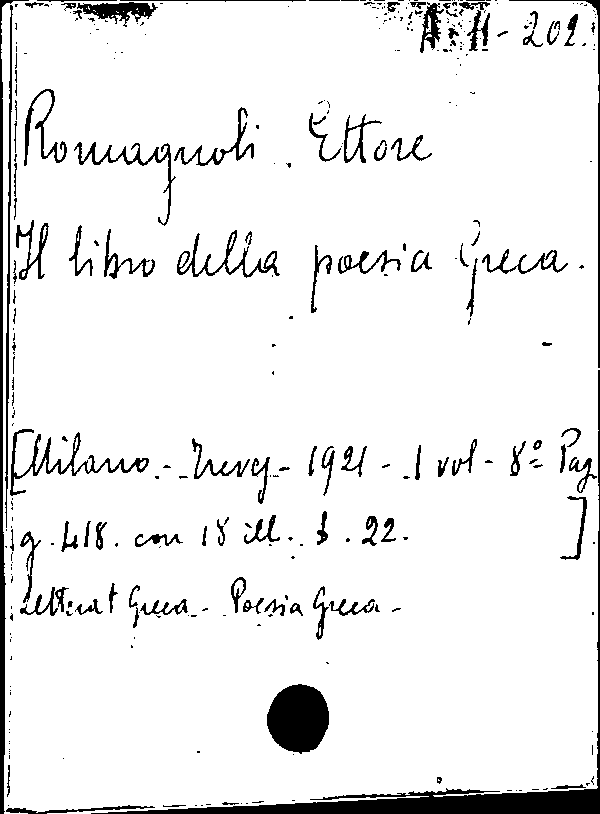 A. 11 - 202.
Romagnoli. Ettore
Il libro della poesia Greca.
[Milano. - Treves - 1921 - 1 vol - 8º = Pag
g. 418. con 18 ill. £. 22. ]
Letterat Greca - Poesia Greca -